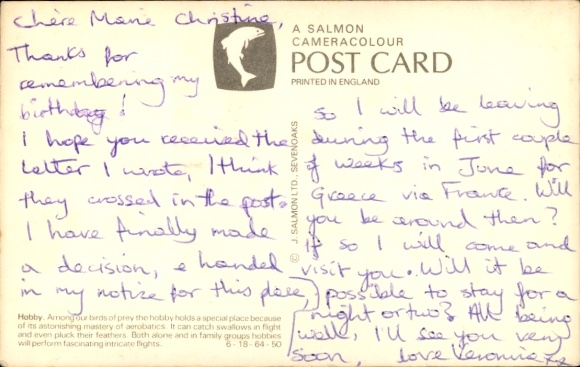 Chère Marie Christine,
Thanks for
remembering my
birthday!
I hope you received the
letter I wrote, I think
they crossed in the post.
I have finally made
a decision, & handed
in my notice for this place,
so I will be leaving
during the first couple
of weeks in June for
Greece via France. Will
you be around then?
If so I will come and
visit you. Will it be
possible to stay for a
night or two? All being
well, I'll see you very
soon, love Veronica xx
A SALMON
CAMERACOLOUR
POST CARD
PRINTED IN ENGLAND
© J. SALMON LTD., SEVENOAKS
Hobby. Among our birds of prey the hobby holds a special place because
of its astonishing mastery of aerobatics. It can catch swallows in flight
and even pluck their feathers. Both alone and in family groups hobbies
will perform fascinating intricate flights. 6-18-64-50